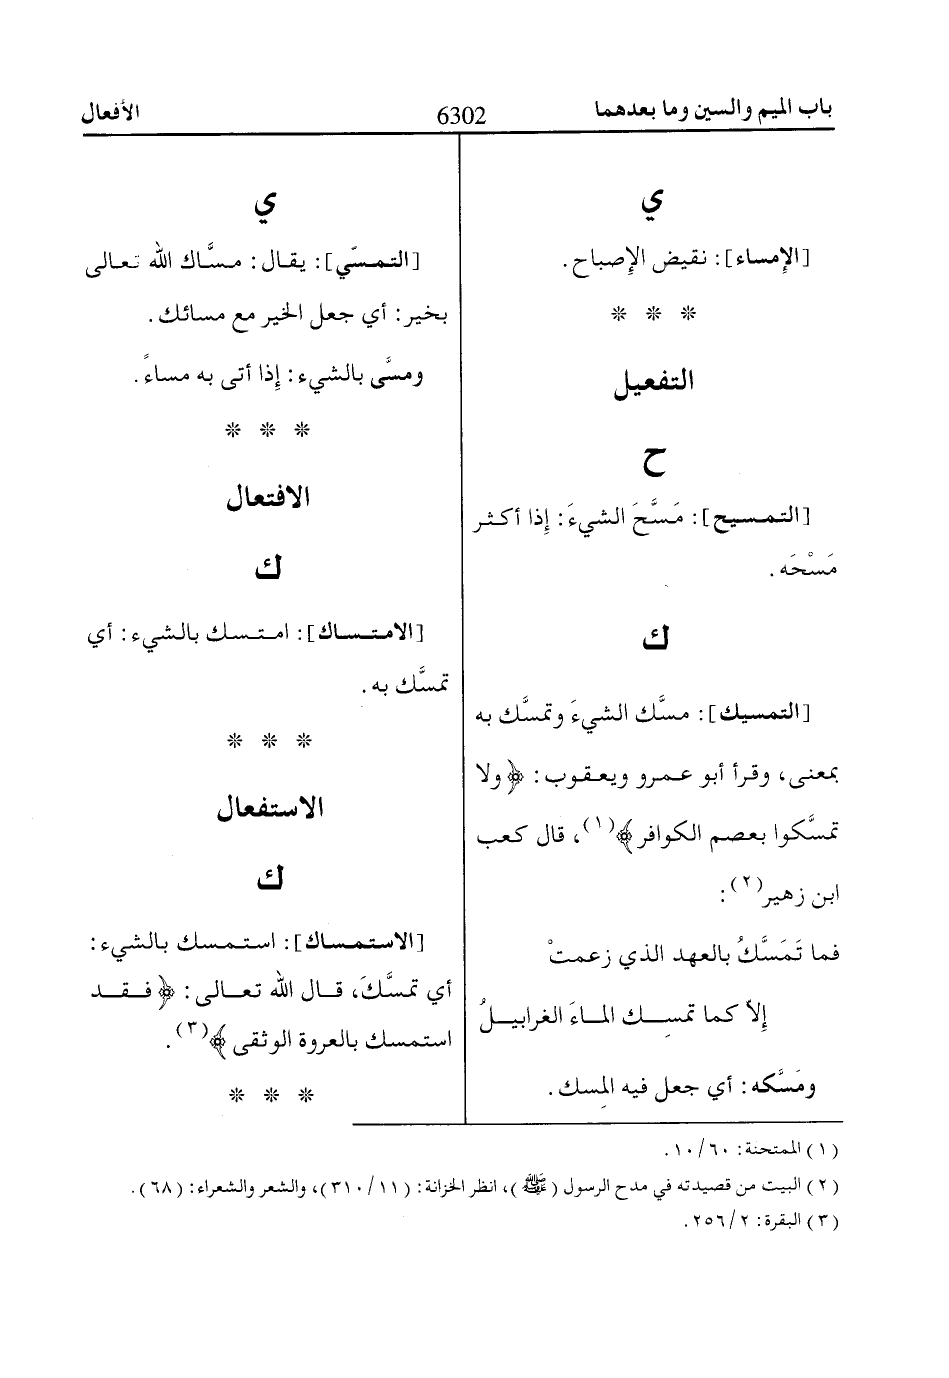 باب الميم والسين وما بعدهما
6302
الأفعال
ي
[الإمساء]: نقيض الإصباح.
* * *
التفعيل
ح
[التمسيح]: مَسَّحَ الشيءَ: إِذا أكثر
مَسْحَه.
ك
[التمسيك]: مسَّك الشيءَ وتمسَّك به
بمعنى، وقرأ أبو عمرو ويعقوب: ﴿ولا
تمسَّكوا بعصم الكوافر﴾(١)، قال كعب
ابن زهير(٢):
فما تَمَسَّكُ بالعهد الذي زعمتْ
إِلاّ كما تمسِـك المـاءَ الغرابيـلُ
ومَسَّكه: أي جعل فيه المِسك.
ي
[التمسّي]: يقال: مسَّاك الله تعالى
بخير: أي جعل الخير مع مسائك.
ومسَّى بالشيء: إِذا أتى به مساءً.
* * *
الافتعال
ك
[الامتساك]: امتسك بالشيء: أي
تمسَّك به.
* * *
الاستفعال
ك
[الاستمساك]: استمسك بالشيء:
أي تمسَّكَ، قال الله تعالى: ﴿فقد
استمسك بالعروة الوثقى﴾(٣).
* * *
(١) الممتحنة: ١٠/٦٠.
(٢) البيت من قصيدته في مدح الرسول (ﷺ)، انظر الخزانة: (٣١٠/١١)، والشعر والشعراء: (٦٨).
(٣) البقرة: ٢٥٦/٢.